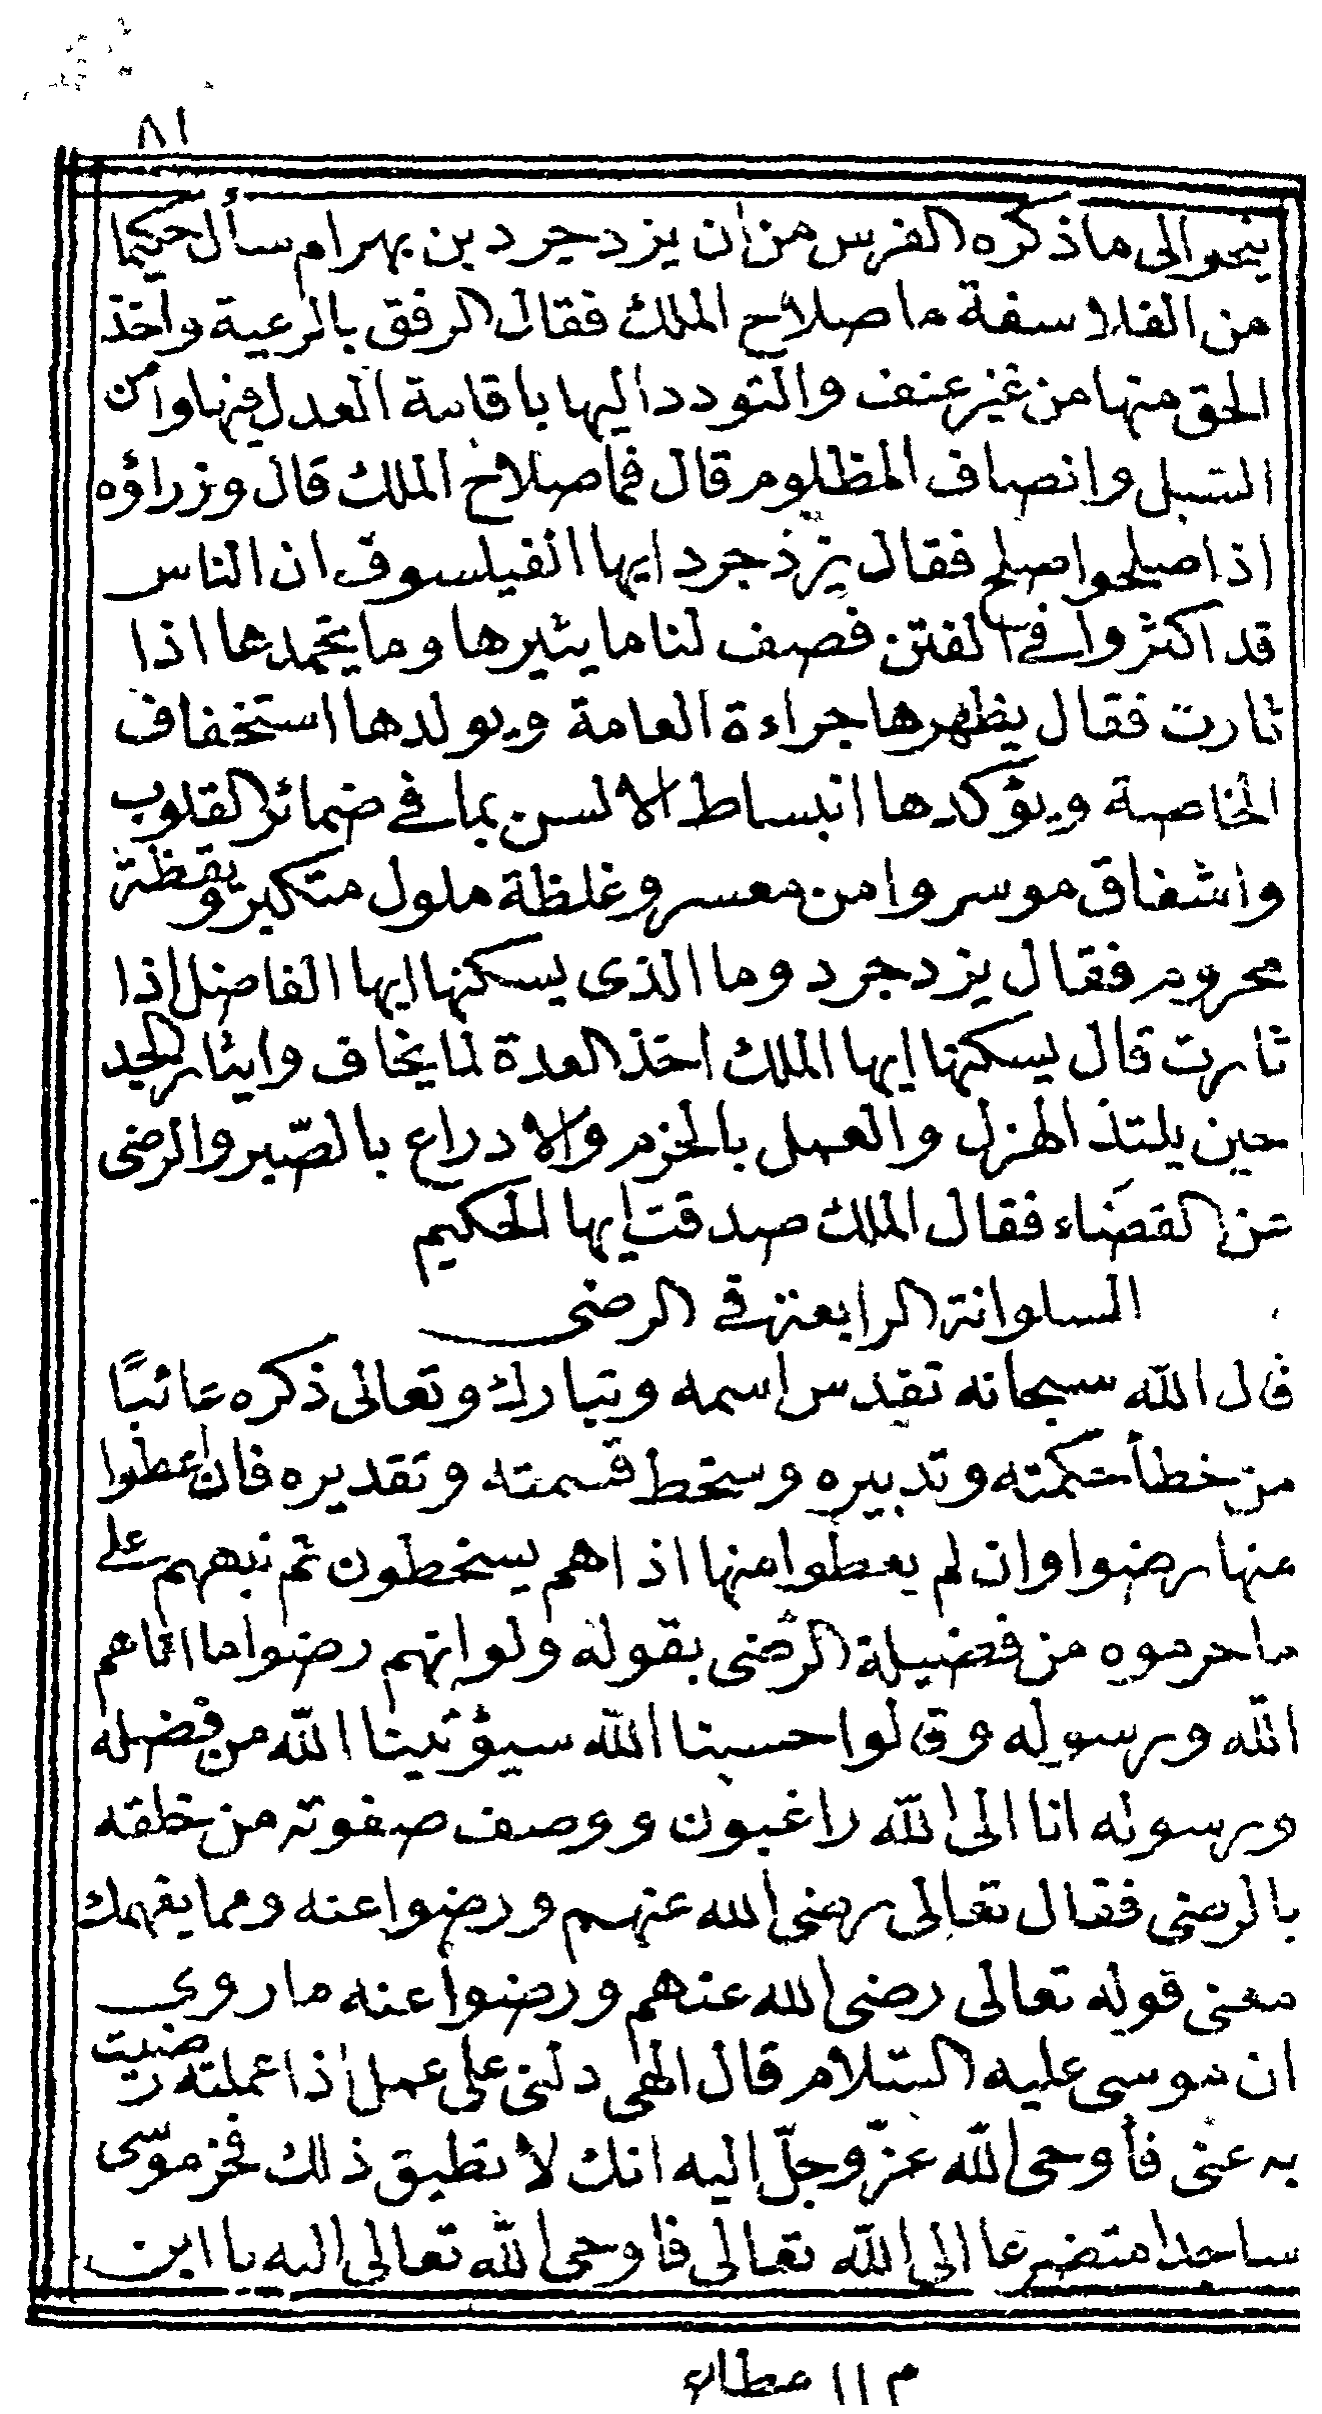 ٨١
ينحو الى ما ذكره الفرس من ان يزدجرد بن بهرام سأل حكيما
من الفلاسفة ما صلاح الملك فقال الرفق بالرعية واخذ
الحق منها من غير عنف والتودد اليها باقامة العدل فيها وامن
السبل وانصاف المظلوم قال فما صلاح الملك قال وزراؤه
اذا صلحوا صلح فقال يزدجرد ايها الفيلسوف ان الناس
قد اكثروا في الفتن فصف لنا ما يثيرها وما يخمدها اذا
ثارت فقال يظهرها جراءة العامة ويولدها استخفاف
الخاصة ويؤكدها انبساط الالسن بما في ضمائر القلوب
واشفاق موسر وامن معسر وغلظة ملول متكبر ويقظة
محروم فقال يزدجرد وما الذى يسكنها ايها الفاضل اذا
ثارت قال يسكنها ايها الملك اخذ العدة لما يخاف وايثار الجد
حين يلتذ الهزل والعمل بالحزم والادراع بالصّبر والرضى
عن القضاء فقال الملك صدقت ايها الحكيم
السلوانة الرابعة في الرضى
قال الله سبحانه تقدس اسمه وتبارك وتعالى ذكره عائبًا
من خطأ حكمته وتدبيره وسخط قسمته وتقديره فان اعطوا
منها رضوا وان لم يعطوا منها اذا هم يسخطون ثم نبههم على
ما حرموه من فضيلة الرضى بقوله ولو انهم رضوا ما اتاهم
الله ورسوله وقالوا حسبنا الله سيؤتينا الله من فضله
ورسوله انا الى الله راغبون ووصف صفوته من خلقه
بالرضى فقال تعالى رضى الله عنهم ورضوا عنه ومما يفهمك
معنى قوله تعالى رضى الله عنهم ورضوا عنه ما روي
ان موسى عليه السّلام قال الهى دلنى على عمل اذا عملته رضيت
به عنى فأوحى الله عزّ وجلّ اليه انك لا تطيق ذلك فخر موسى
ساجدا متضرعا الى الله تعالى فاوحى الله تعالى اليه يا ابن
م ١١ عطاء